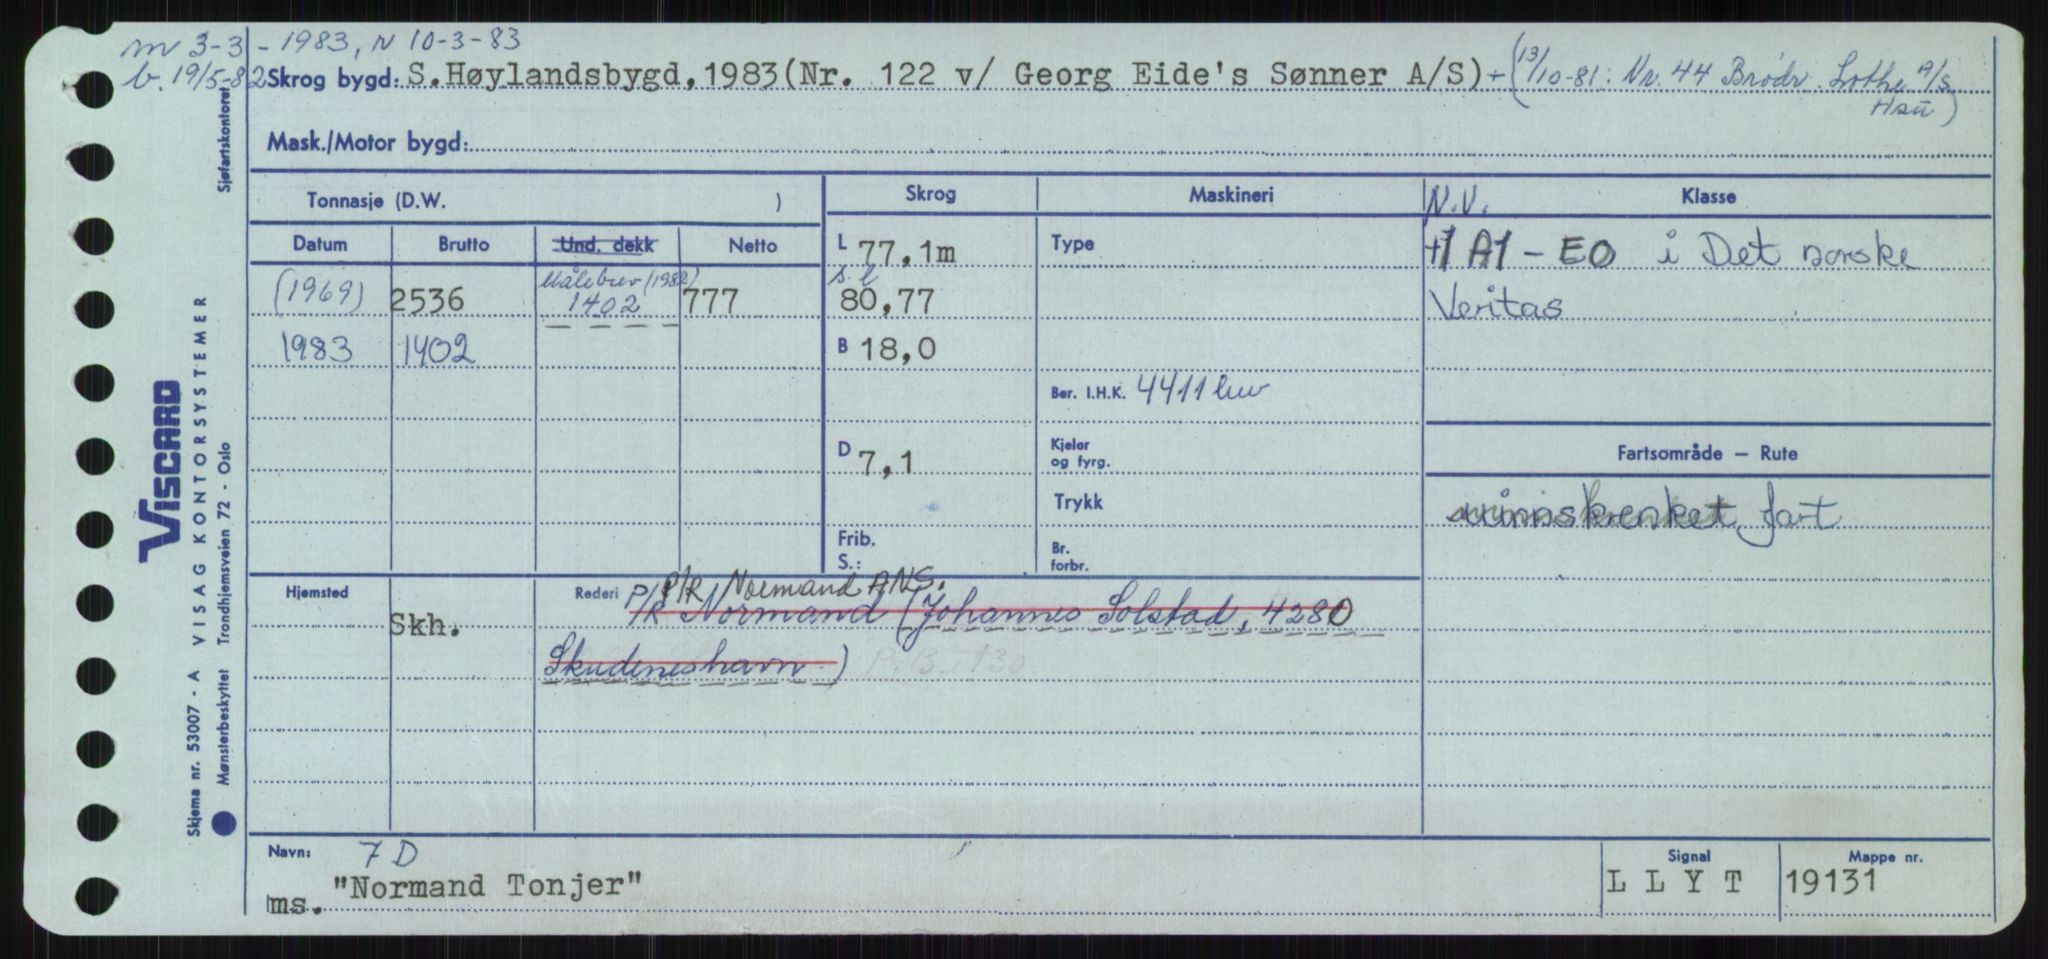 m 3-3 - 1983, N 10-3-83
b. 19/5-82 Skrog bygd: S.Høylandsbygd, 1983 (Nr. 122 v/ Georg Eide's Sønner A/S) + (13/10-81: Nr. 44 Brødr. Lothe A/S
Hau)
Mask./Motor bygd:
Tonnasje (D.W. ) Skrog Maskineri N.V. Klasse
Datum Brutto Und. dekk Netto L 77,1m Type +1A1 - EO i Det norske
(1969) 2536 Målebrev (1982) 1402 777 s l 80,77 Veritas
1983 1402 B 18,0
Ber. I.H.K. 4411
D 7,1 Kjeler og fyrg. Fartsområde — Rute
Trykk uinnskrenket fart
Frib. S.: Br. forbr.
Hjemsted Skh. Rederi P/R Normand ANS.
P/R Normand (Johannes Solstad, 4280
Skudeneshavn)
P.B. 130
Navn: 7 D Signal Mappe nr.
ms. "Normand Tonjer" L L Y T 19131
Sjøfartskontoret
VISCARD
VISAG KONTORSYSTEMER
Trondhjemsveien 72 - Oslo
Skjema nr. 53007 - A
Mønsterbeskyttet